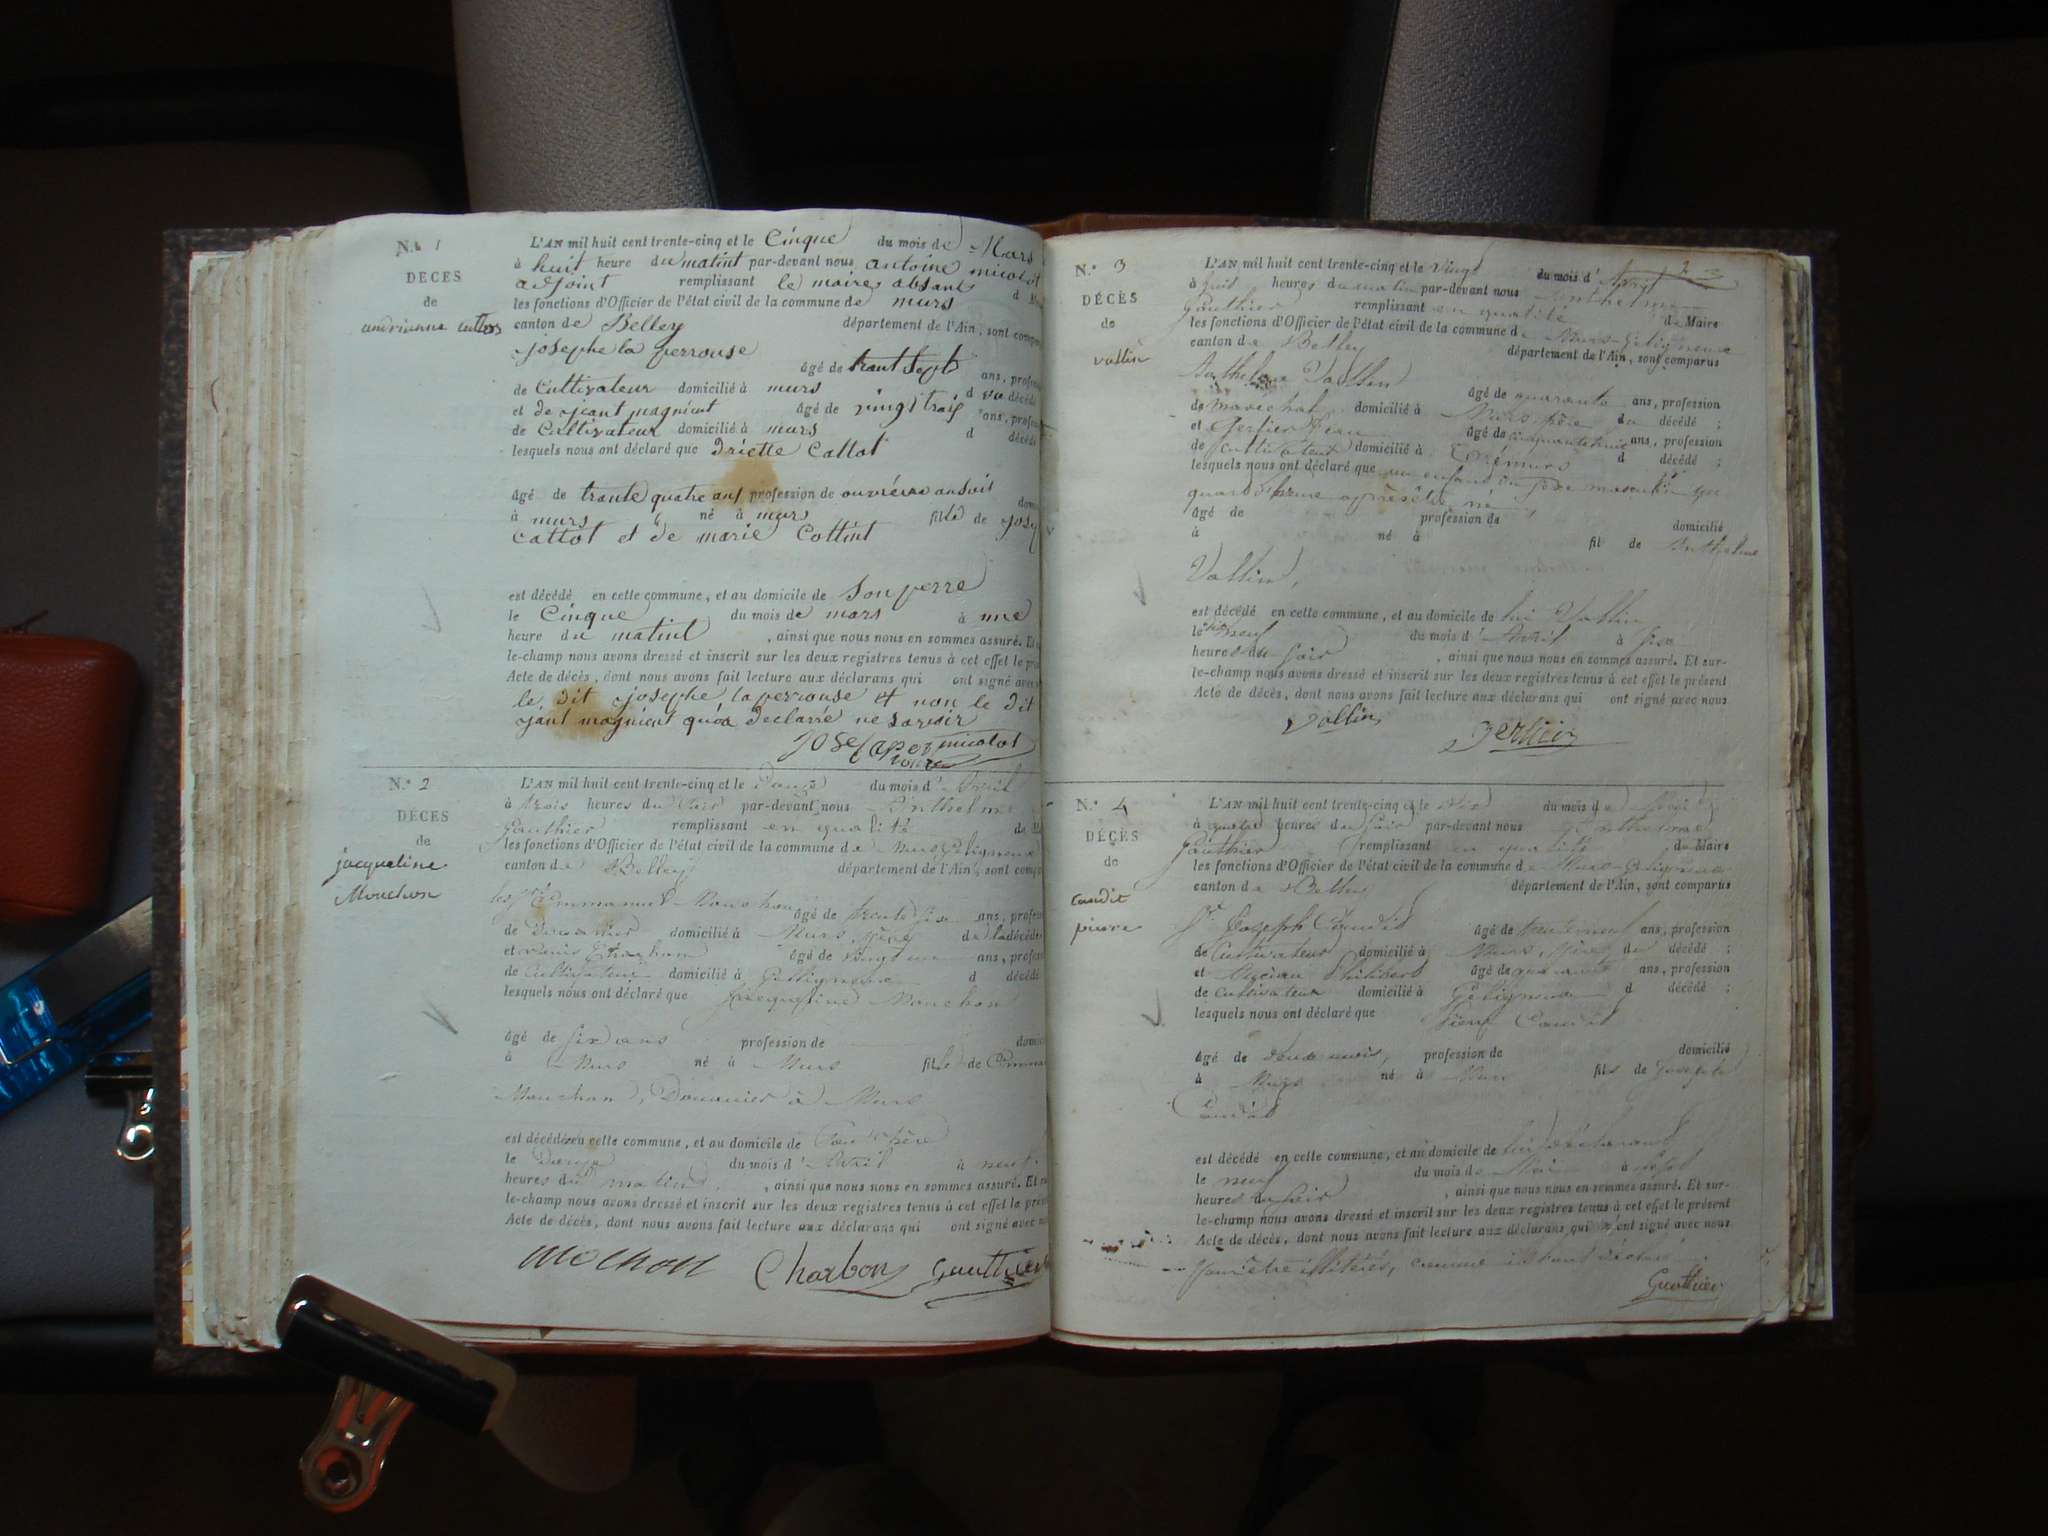 N.° 1
DÉCÈS
de
L'AN mil huit cent trente-cinq et le Cinque du mois de Mars
à huit heure du matint par-devant nous antoine micolot
adjoint remplissant le maire absant
les fonctions d'Officier de l'état civil de la commune de murs
canton de Belley département de l'Ain, sont
josephe la perrouse
âgé de trant sept ans,
de Cultivateur domicilié à murs d décédé
et de jeant magnient âgé de vingt trais ans,
de Cultivateur domicilié à murs d décédé
lesquels nous ont déclaré que driette Cattot
âgé de trante quatre ans profession de ouvriere
à murs né à murs fille de
Cattot et de marie Cottint
est décédé en cette commune, et au domicile de Son perre
le Cinque du mois de mars à une
heure du matint, ainsi que nous nous en sommes assuré. Et
le-champ nous avons dressé et inscrit sur les deux registres tenus à cet effet le
Acte de décès, dont nous avons fait lecture aux déclarans qui ont signé avec
le dit josephe laperrouse et non le dit
jant magnient qu'a declarré ne savoir
micolot
N.° 2
DÉCÈS
de
jacqueline
Mouchon
L'AN mil huit cent trente-cinq et le Douze du mois d'Avril
à trois heures du soir par-devant nous Anthelme
Gauthier remplissant en qualité de
les fonctions d'Officier de l'état civil de la commune de Murs Gelignieux
canton de Belley département de l'Ain, sont
Emmanuel Mouchon âgé de trente six ans,
de Douanier domicilié à Murs père de la décédée
et âgé de vingt un ans,
de Cultivateur domicilié à Gelignieux d décédé
lesquels nous ont déclaré que Jacqueline Mouchon
âgé de six ans profession de
à Murs né à Murs fille de
Mouchon, Douanier à Murs
est décédée en cette commune, et au domicile de Son père
le Douze du mois d'Avril à neuf
heures du matin, ainsi que nous nous en sommes assuré. Et
le-champ nous avons dressé et inscrit sur les deux registres tenus à cet effet le
Acte de décès, dont nous avons fait lecture aux déclarans qui ont signé avec
Mochon Charbon Gauthier
N.° 3
DÉCÈS
de
vallin
L'AN mil huit cent trente-cinq et le vingt du mois d'Avril
à huit heures du matin par-devant nous Anthelme
Gauthier remplissant en qualité de Maire
les fonctions d'Officier de l'état civil de la commune de Murs-Gelignieux
canton de Belley département de l'Ain, sont comparus
Anthelme Vallin
âgé de quarante ans, profession
de marechal domicilié à Murs père du décédé ;
et âgé de ans, profession
de cultivateur domicilié à d décédé ;
lesquels nous ont déclaré que un enfant du sexe masculin
quart d'heure après être né,
âgé de profession de domicilié
à né à fil de Anthelme
Vallin,
est décédé en cette commune, et au domicile de lui Vallin
le du mois d'Avril à six
heures du soir, ainsi que nous nous en sommes assuré. Et sur-
le-champ nous avons dressé et inscrit sur les deux registres tenus à cet effet le présent
Acte de décès, dont nous avons fait lecture aux déclarans qui ont signé avec nous
vallin
N.° 4
DÉCÈS
de
caudit
pierre
L'AN mil huit cent trente-cinq et le dix du mois de Mai
à quatre heures du soir par-devant nous Anthelme
Gauthier remplissant en qualité de Maire
les fonctions d'Officier de l'état civil de la commune de Murs-Gelignieux
canton de Belley département de l'Ain, sont comparus
Joseph Caudit âgé de trenteneuf ans, profession
de Cultivateur domicilié à Murs, père du décédé ;
et Philibert âgé de quarante ans, profession
de cultivateur domicilié à Gelignieux d décédé ;
lesquels nous ont déclaré que Pierre Caudit
âgé de deux mois, profession de domicilié
à Murs né à Murs fils de Joseph
Caudit
est décédé en cette commune, et au domicile de
le neuf du mois de Mai à sept
heures du soir, ainsi que nous nous en sommes assuré. Et sur-
le-champ nous avons dressé et inscrit sur les deux registres tenus à cet effet le présent
Acte de décès, dont nous avons fait lecture aux déclarans qui n'ont signé avec nous
pour être illitérés, comme ils l'ont déclaré
Gauthier